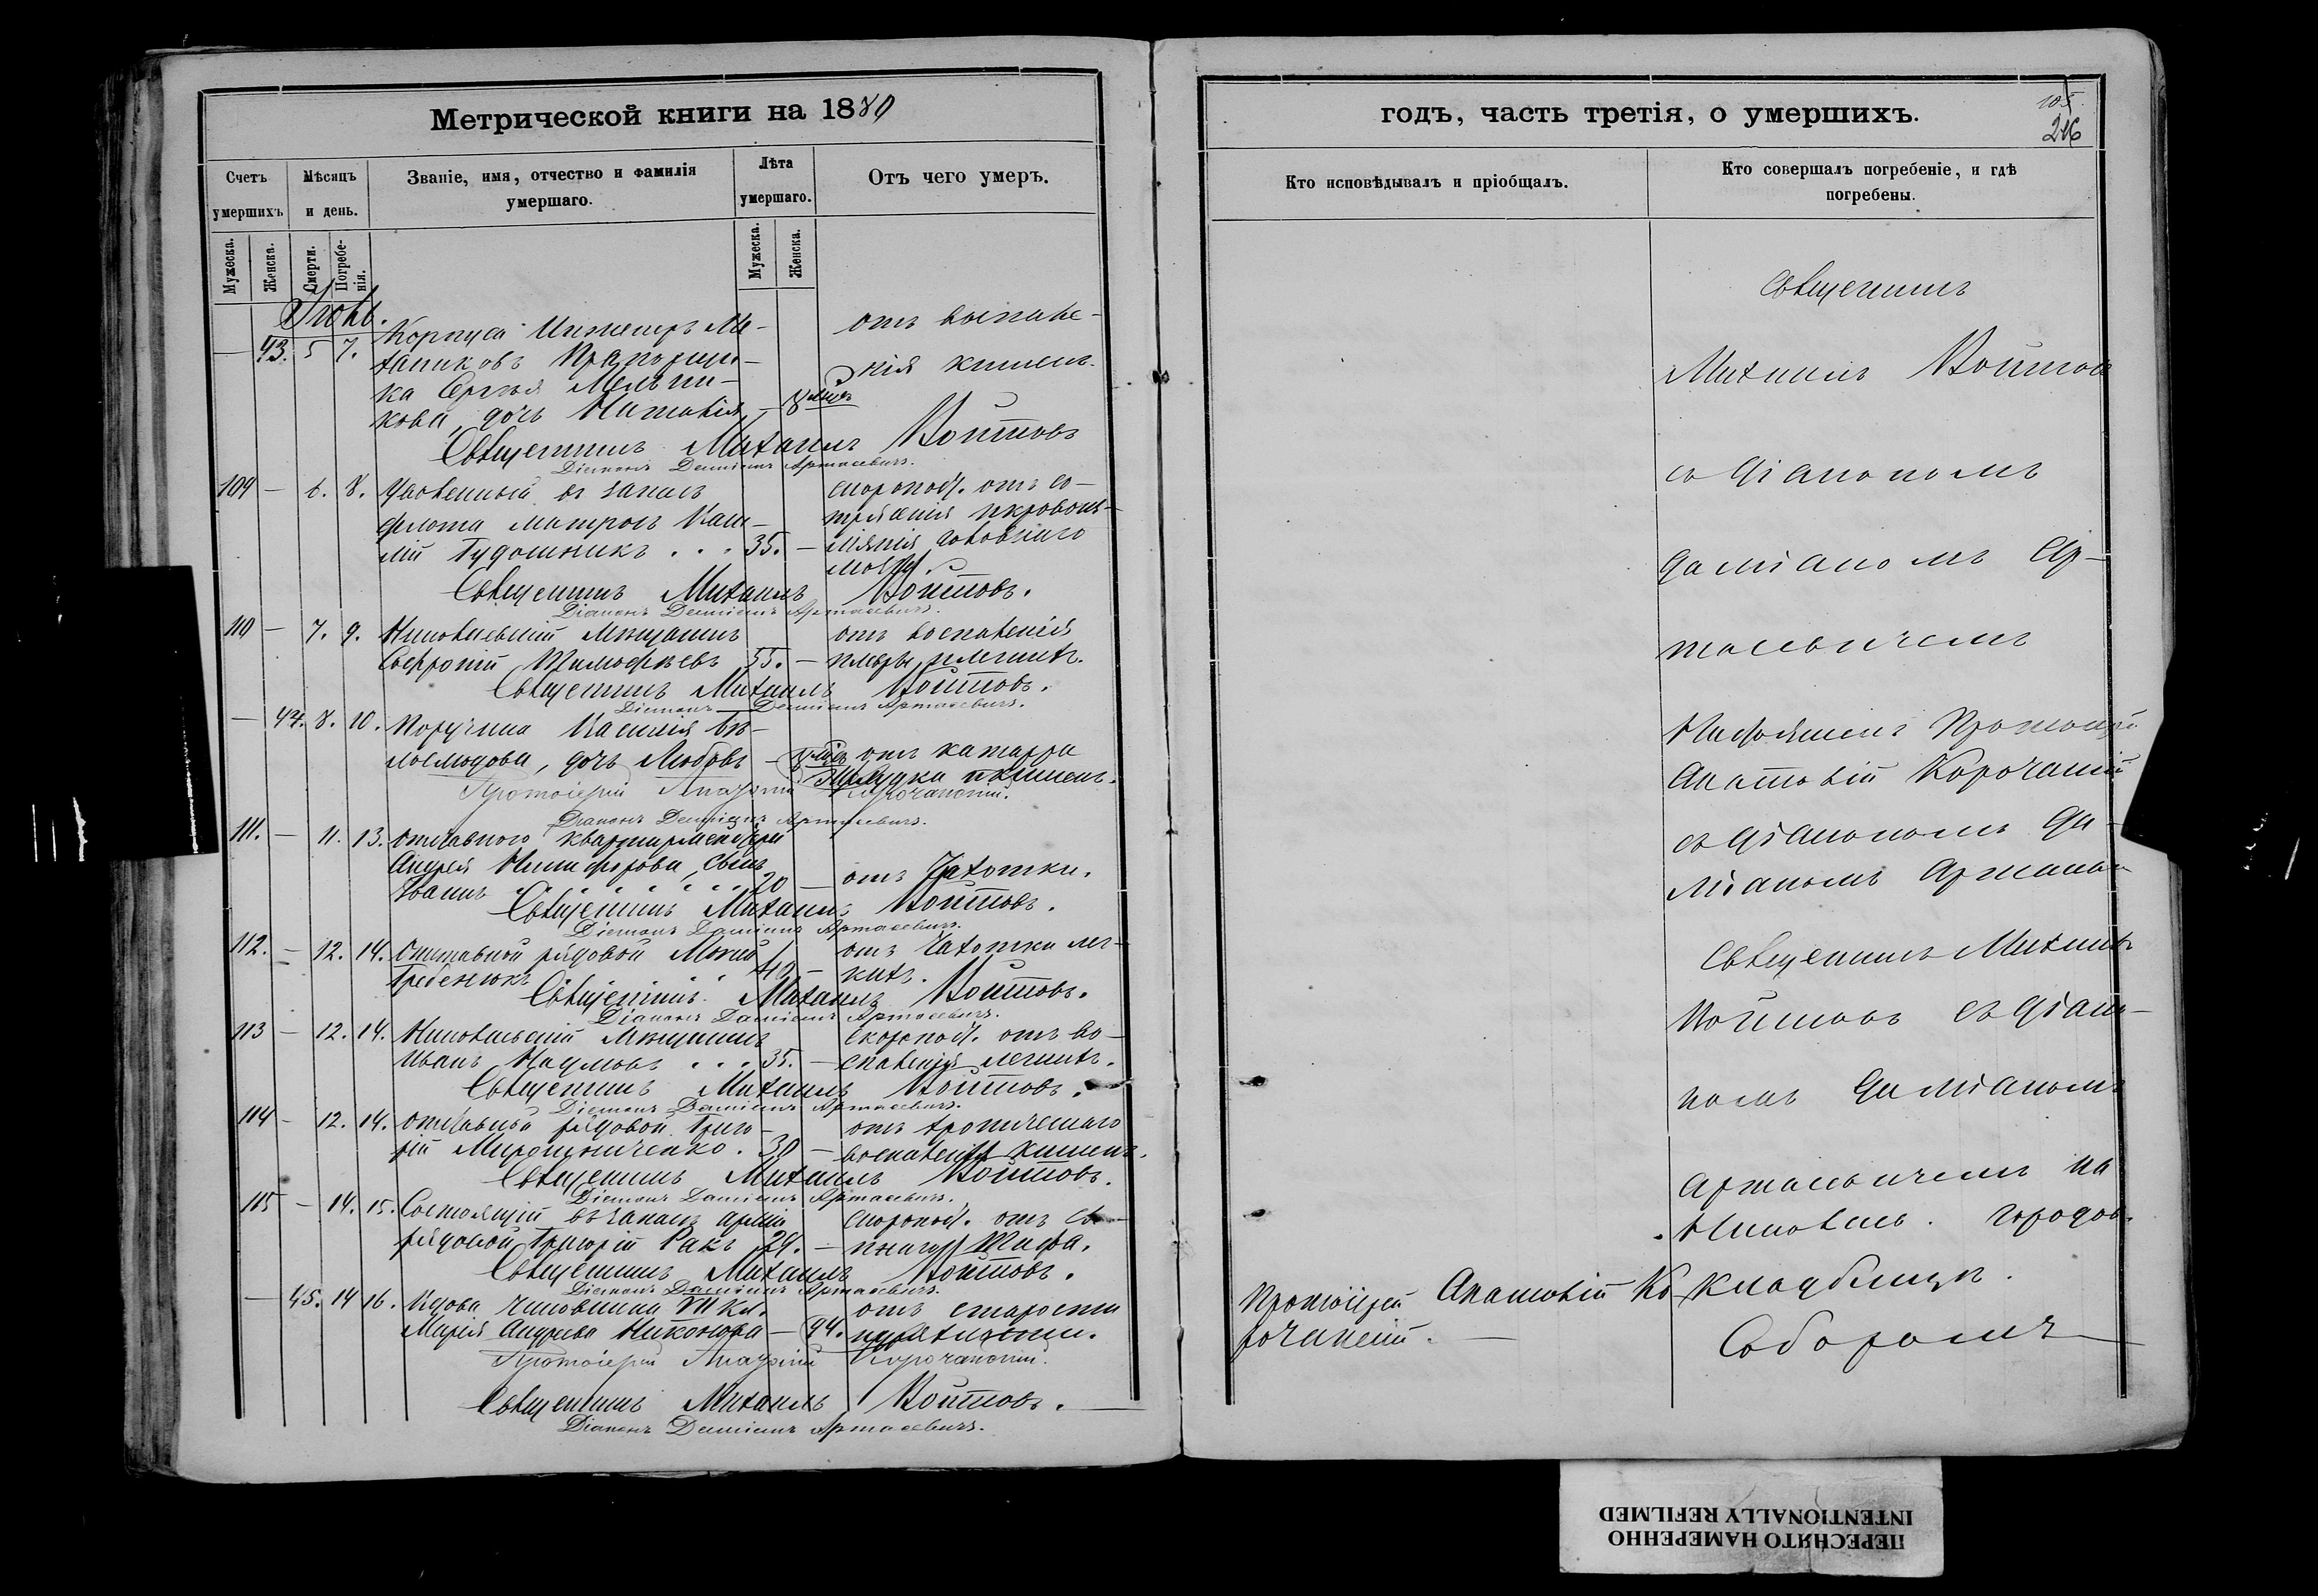 Метрической книги на 1880
Счетъ умершихъ
Мѣсяцъ и день.
Званіе, имя, отчество и фамилія умершаго.
Лѣта умершаго.
Отъ чего умеръ.
Мужеска.
Женска.
Смерти.
Погребенія.
Мужеска.
Женска.
Іюль.
Корпуса Инженеръ Ме-
— 43. 5 7. ханиковъ Прапорщи-
ка Сергѣя Мельни-
кова, дочь Наталія — 8 мѣс.
отъ воспале-
нія кишекъ.
Священникъ Михаилъ Войтовъ
Діаконъ Даміанъ Артасевичъ.
109 — 6. 8. Уволенный въ запасъ
флота матросъ
Гудошникъ . . . 35. —
скоропост. отъ со-
трясенія и кровоиз-
ліянія головнаго
мозга.
Священникъ Михаилъ Войтовъ.
Діаконъ Даміанъ Артасевичъ.
110 — 7. 9. Николаевскій мѣщанинъ
Софроній Тимофѣевъ 55. —
отъ воспаленія
плевры и легкихъ.
Священникъ Михаилъ Войтовъ.
Діаконъ Даміанъ Артасевичъ.
— 44. 8. 10. Поручика Василія
дочь Любовь — 8 мѣс.
отъ катарра
желудка и кишекъ.
Протоіерей Анатолій Корочанскій.
Діаконъ Даміанъ Артасевичъ.
111. — 11. 13. отставного квартирмейстера
Андрея Никифорова, сынъ
Іванъ . . . . . . 20 —
отъ Чахотки.
Священникъ Михаилъ Войтовъ.
Діаконъ Даміанъ Артасевичъ.
112. — 12. 14. Отставной рядовой Мокій
Гребенюкъ 40 —
отъ Чахотки лег-
кихъ.
Священникъ Михаилъ Войтовъ.
Діаконъ Даміанъ Артасевичъ.
113 — 12. 14. Николаевскій мѣщанинъ
Иванъ Наумовъ . . . 35. —
скоропост. отъ во-
спаленія легкихъ.
Священникъ Михаилъ Войтовъ.
Діаконъ Даміанъ Артасевичъ.
114 — 12. 14. отставной рядовой Григо-
рій Мирошниченко . 30 —
отъ хроническаго
воспаленія кишекъ.
Священникъ Михаилъ Войтовъ.
Діаконъ Даміанъ Артасевичъ.
115 — 14. 15. Состоящій въ запасѣ арміи
рядовой Григорій Ракъ 29. —
скоропост. отъ
Тифа.
Священникъ Михаилъ Войтовъ.
Діаконъ Даміанъ Артасевичъ.
— 45. 14 16. Вдова чиновника VII кл.
Марія Андреева Никонова — 94.
отъ старости
Протоіерей Анатолій Корочанскій.
Священникъ Михаилъ Войтовъ.
Діаконъ Даміанъ Артасевичъ.
годъ, часть третія, о умершихъ.
105.
216
Кто исповѣдывалъ и пріобщалъ.
Кто совершалъ погребеніе, и гдѣ погребены.
Священникъ
Михаилъ Войтовъ
съ діакономъ
Даміаномъ Ар-
тасевичемъ
Протоіерей
Анатолій Корочанскій
съ діакономъ Да-
міаномъ
Священникъ Михаилъ
Войтовъ съ діако-
номъ Даміаномъ
Артасевичемъ на
Николаев. городов.
кладбищѣ.
Соборомъ
Протоіерей Анатолій Ко-
рочанскій. —
ПЕРЕСНЯТО НАМЕРЕННО
INTENTIONALLY REFILMED